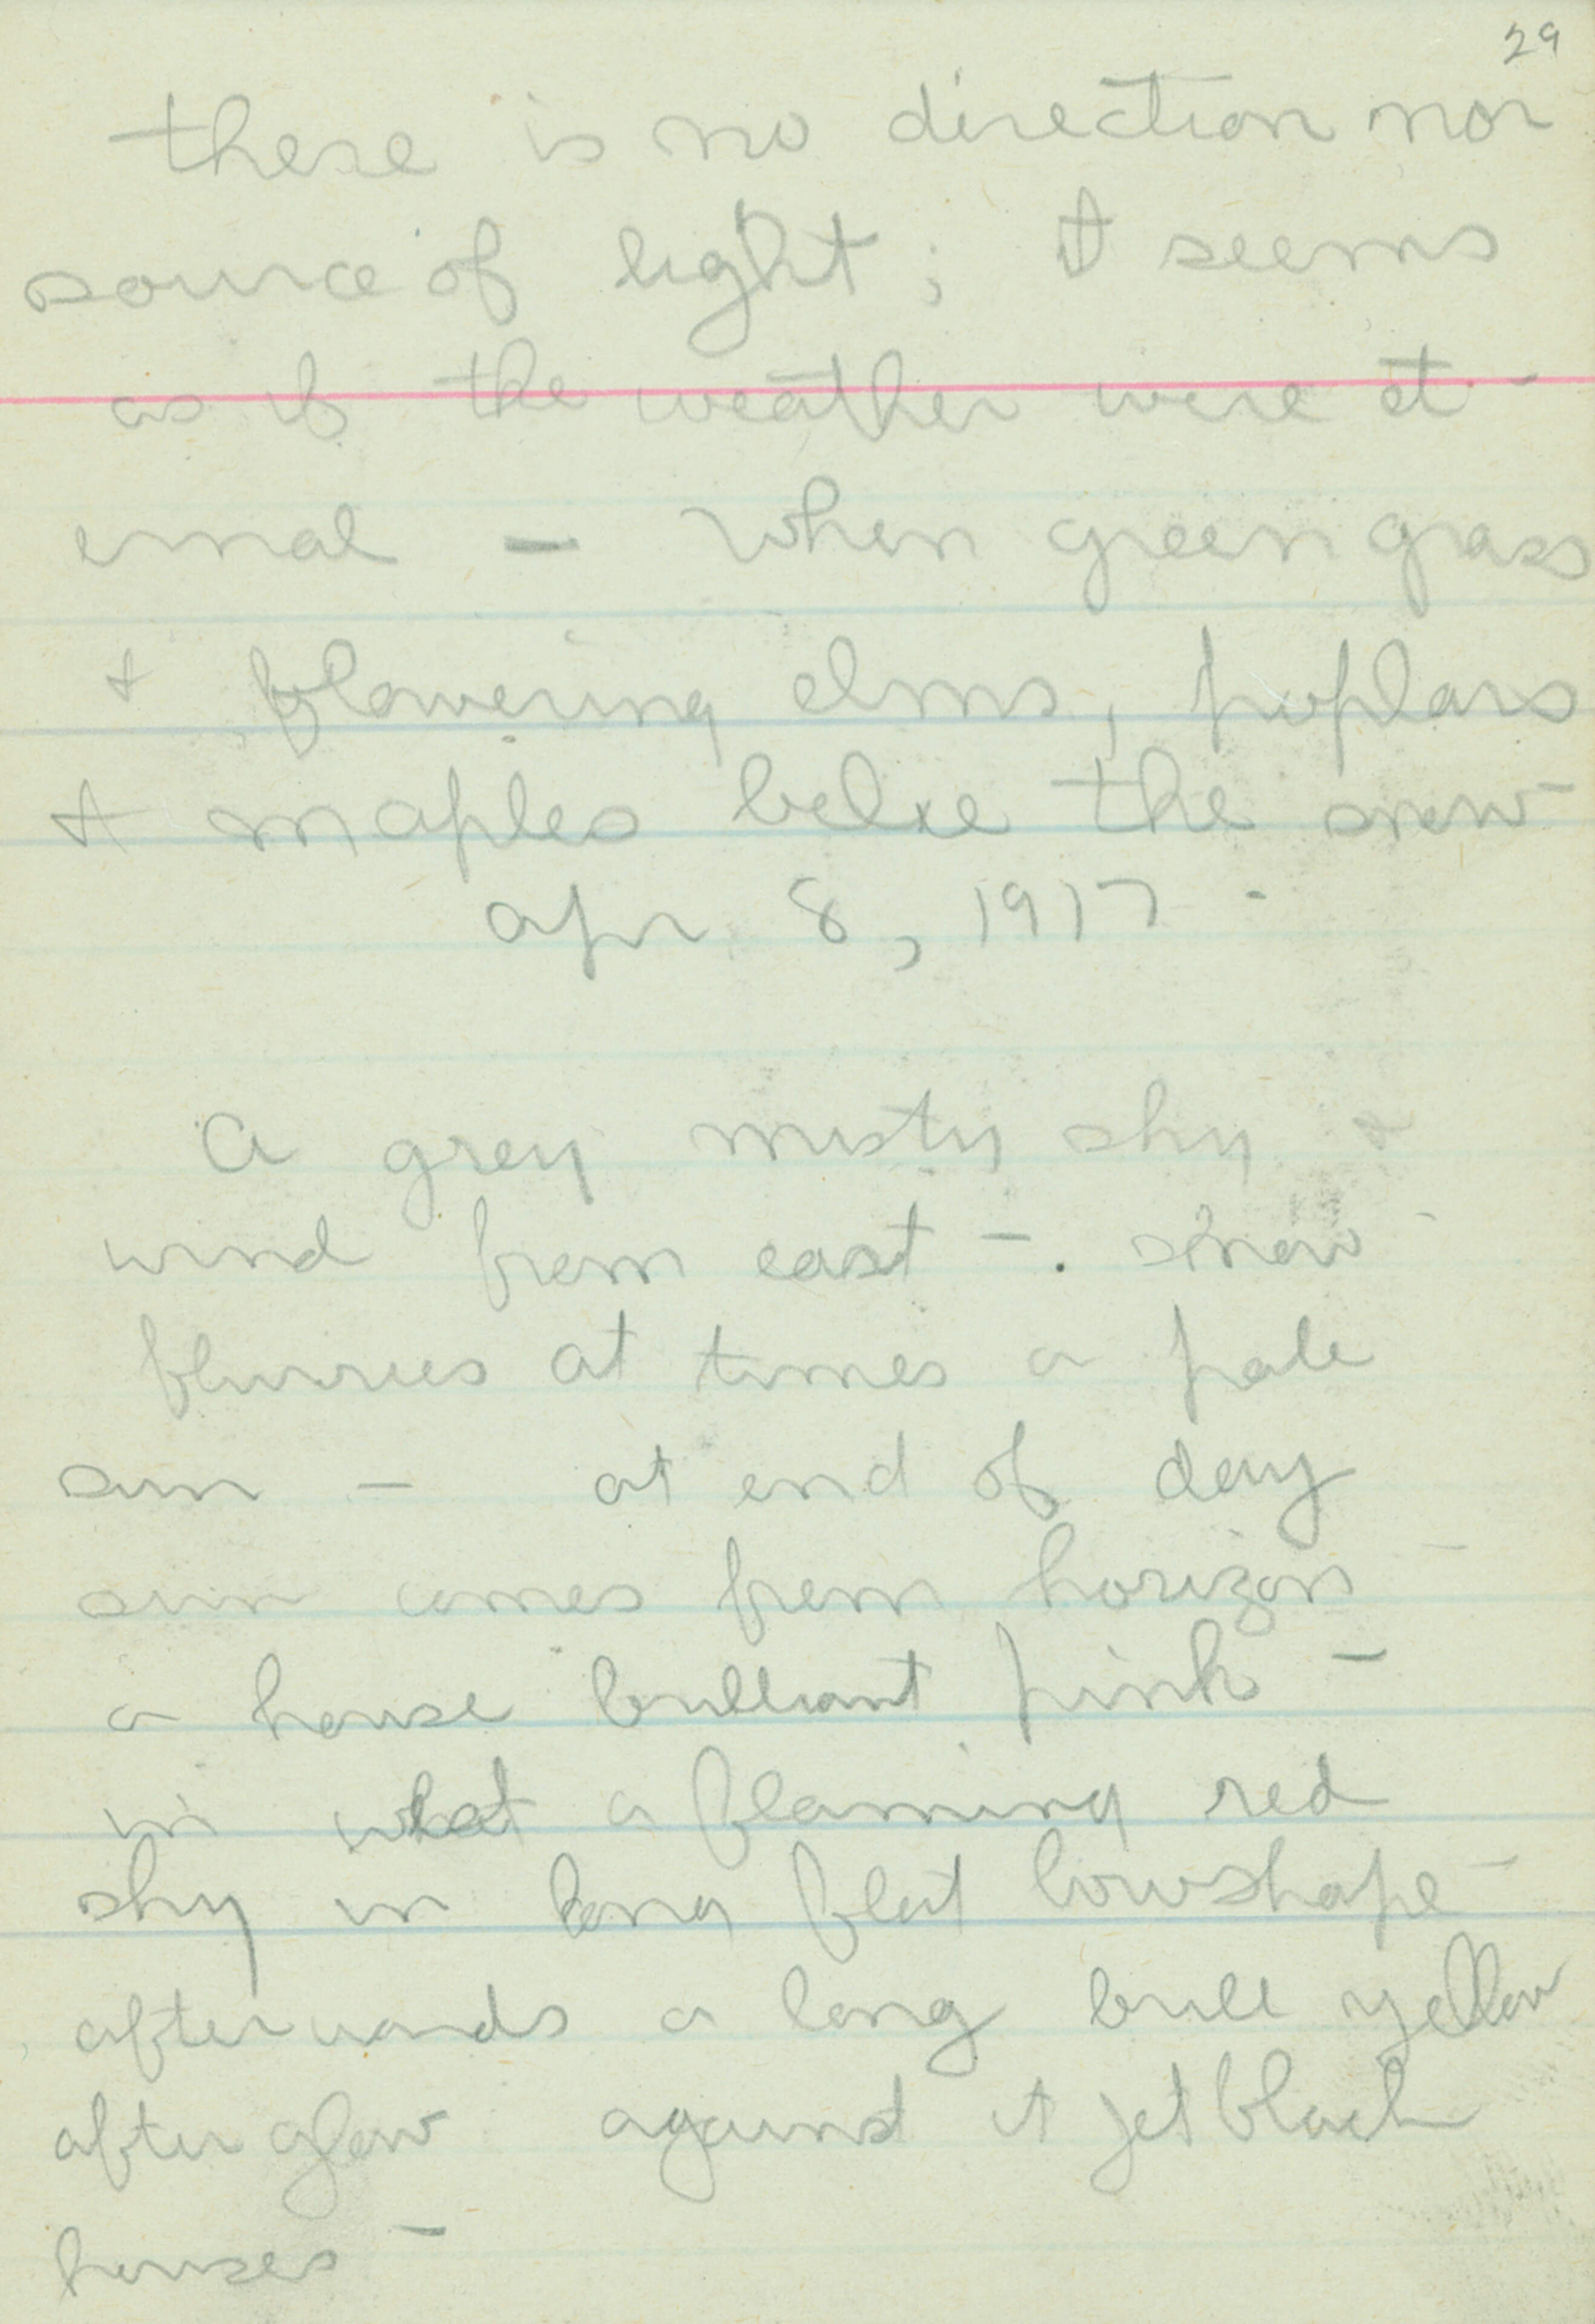 29
there is no direction nor
source of light; it seems
as if the weather were et-
ernal - when green grass
+ flowering elms, poplars
+ maples belie the snow -
Apr 8, 1917 -
A grey misty sky &
wind from east -. snow -
flurries at times a pale
sun - at end of day
sun comes from horizon -
a house brilliant pink -
in what a flaming red
sky in long flat bow shape -
afterwards a long yellow
after glow against it jet black
houses -